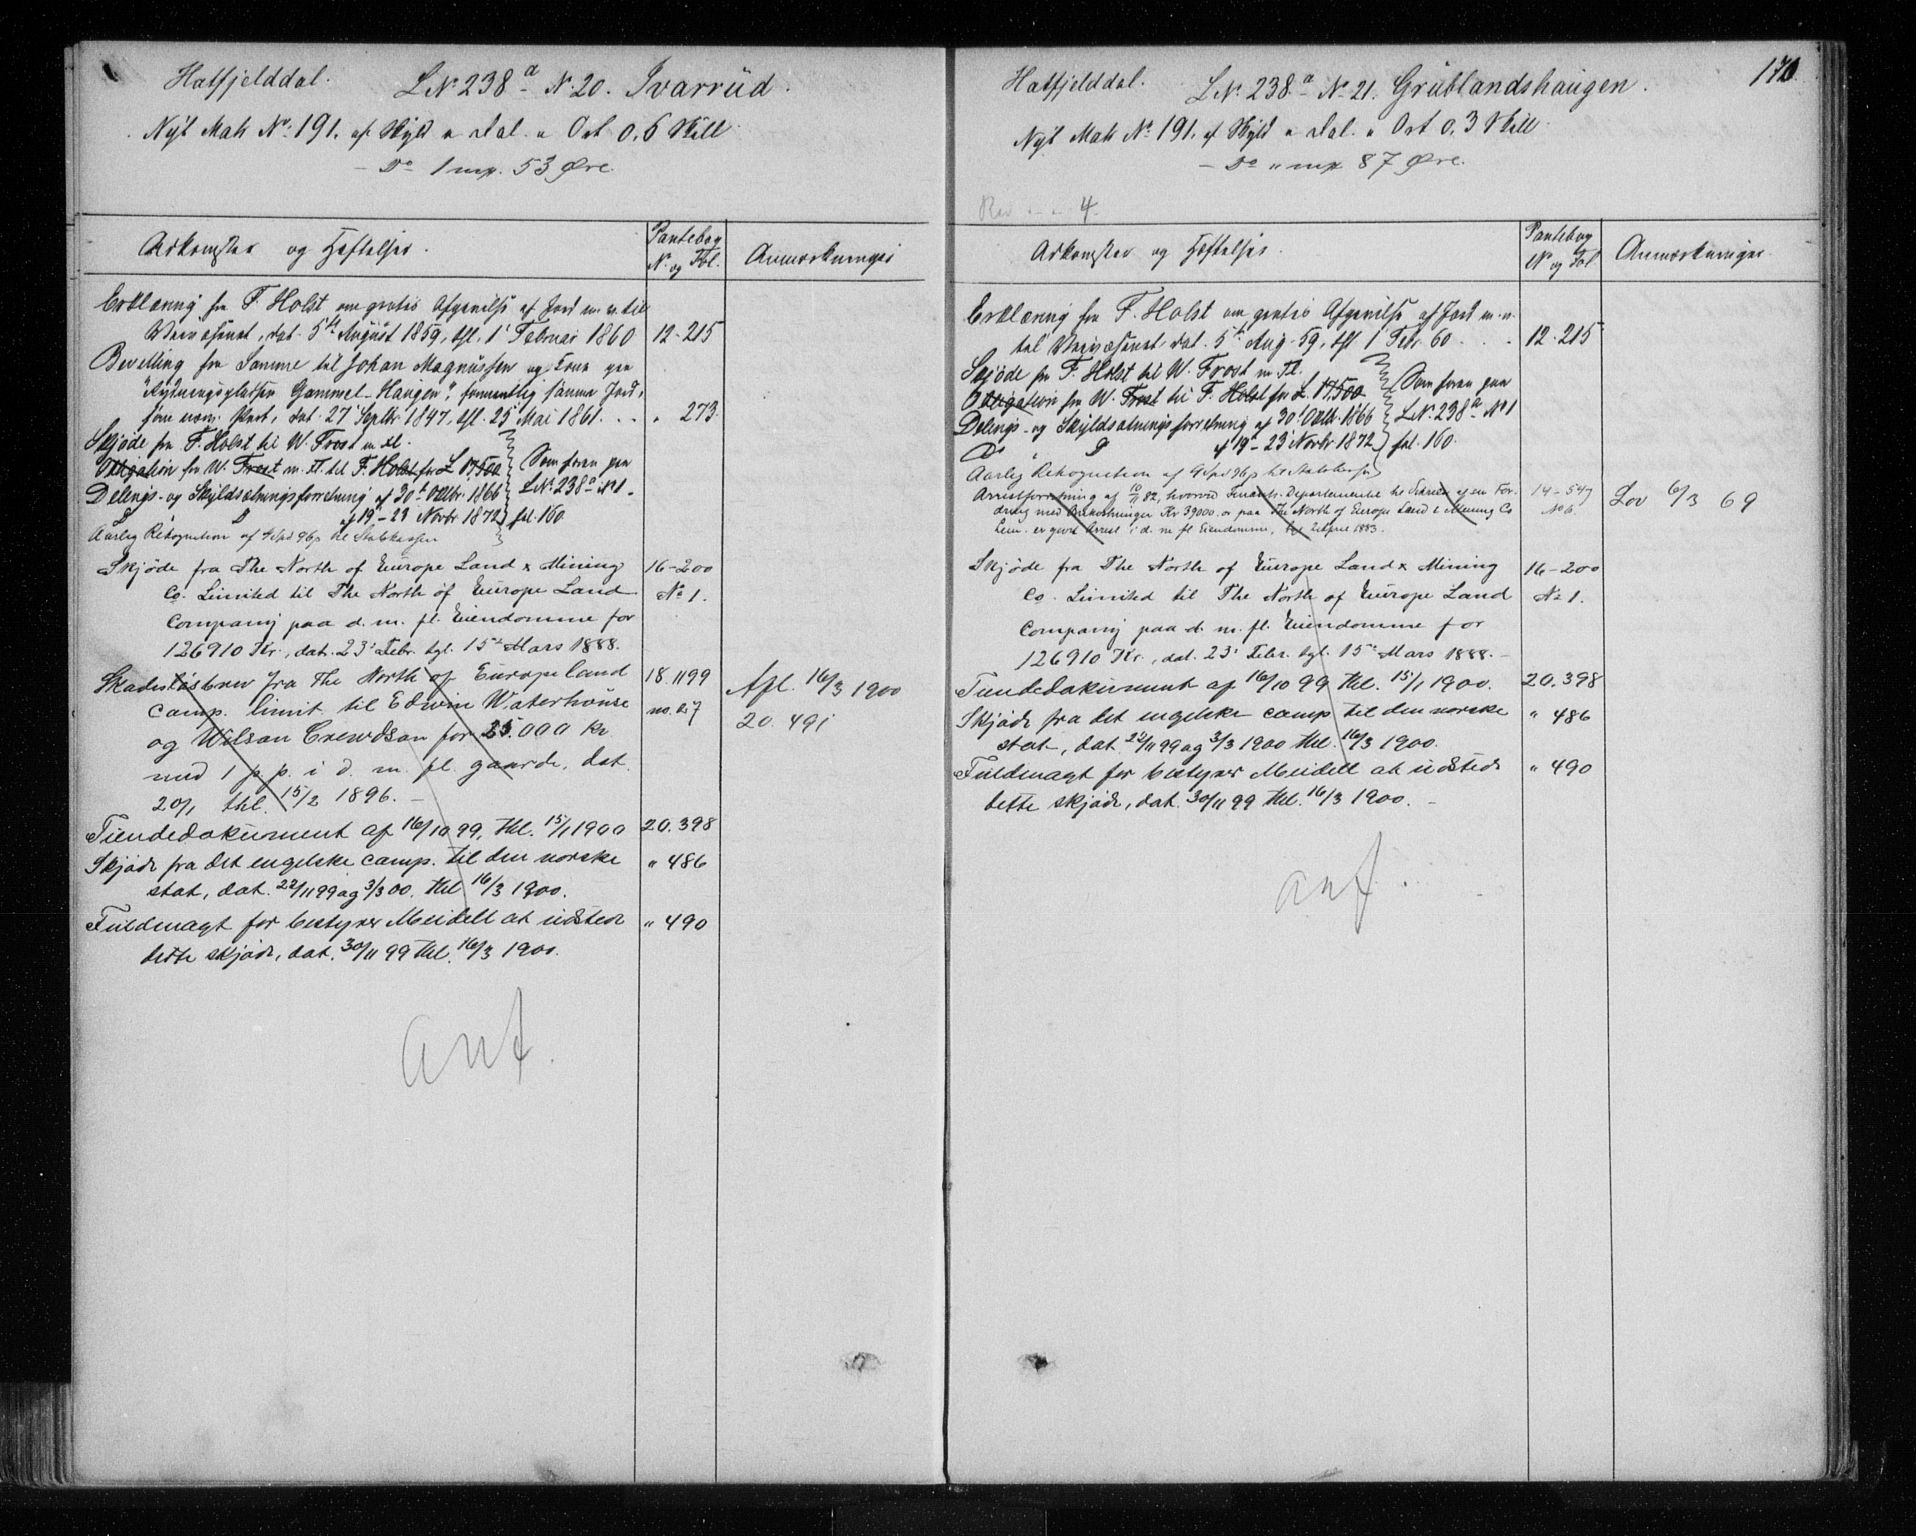 Hatfjelddal. L.No 238 a No 20. Ivarrud.
Nyt Matr No: 191. af Skyld " Dal. " Ort 0.6 Skill
- Do 1 mrk. 53 Øre.
Adkomster og Hæftelser.
Pantebog
No. og Fol.
Anmærkninger
Erklæring fra F. Holst om gratis Afgivelse af Jord m. v. til
Veivæsenet, dat. 5te August 1859, thl. 1' Februar 1860 12-215
Bevilling fra Samme til Johan Magnussen og Kone paa
Rydningspladsen Gammel-Haugen", formentlig samme Jord,
som nærv. Part, dat. 27 Septbr 1847, thl. 25' Mai 1861. . . " 273.
Skjøde fra F. Holst til W. Frost m. fl.
Obligation fra W. Frost m. fl. til F. Holst for £ 17,500 Som foran paa
Delings- og Skyldsætningsforretning af 30te Octbr. 1866 L.No. 238 a No 1.
D D af 19-23 Novbr 1872 fol. 160
Aarlig Rekognition af 4 Spd 96 s til Statskassen
Skjøde fra The North of Europe Land & Mining 16-200
Co. Limited til The North of Europe Land No 1.
Company paa d. m. fl. Eiendomme for
126910 Kr., dat. 23' Febr. tgl. 15de Mars 1888.
Skadesløsbrev fra The North of Europe land 18.1199
comp. limit til Edwin Waterhouse no. 27
og Wilson Crewdson for 25.000 kr
med 1 p. p. i d. m. fl. gaarde, dat.
20/1 thl. 15/2 1896. -
Afl. 16/3 1900
20. 491
Tiendedokument af 16/10 99, thl. 15/1 1900 20.398
Skjøde fra det engelske comp. til den norske " 486
stat, dat. 22/11 99 og 3/3 00. thl 16/3 1900.
Fuldmagt for bestyrer Meidell at udstede " 490
dette skjøde, dat. 30/11 99 thl. 16/3 1900.
anf.
170
Hatfjelddal. L.No. 238 a No 21. Grublandshaugen.
Nyt Matr No 191. af Skyld " Dal. " Ort 0.3 Skill
- Do " mrk 87 Øre.
Rev - - 4-
Adkomster og Hæftelser.
Pantebog
No og Fol
Anmærkninger.
Erklæring fra F. Holst om gratis Afgivelse af Jord m. v.
til Veivæsenet, dat. 5te Aug. 59, thl 1' Febr. 60 . . . 12-215
Skjøde fra F. Holst til W. Frost m Fl.
Obligation fra W. Frost til F. Holst for £ 17,500 Som foran paa
Delings- og Skyldsætningsforretning af 30' Octb. 1866 L.No. 238 a No 1
Do D af 19-23' Novbr 1872 fol. 160.
Aarlig Rekognition af 4 Spd 96 s til Statskassen
Arrestforretning af 10/11 82, hvorved Finants-Departementet til Sikring af en For- 14-547
dring med Omkostninger Kr 39000. er paa The North of Europe Land & Mining Co No 6.
Lim. er gjort Arrest i d. m fl Eiendomme, 2 April 1883.
Lov 6/3 69
Skjøde fra The North of Europe Land & Mining 16-200
Co. Limited til The North of Europe Land No 1.
Company paa d. m. fl. Eiendomme for
126910 Kr., dat. 23' Febr. tgl. 15de Mars 1888. -
Tiendedokument af 16/10 99 thl. 15/1 1900. 20.398
Skjøde fra det engelske comp. til den norske " 486
stat, dat. 22/11 99 og 3/3 1900 thl. 16/3 1900.
Fuldmagt for bestyrer Meidell at udstede " 490
dette skjøde, dat. 30/11 99 thl. 16/3 1900. -
anf.